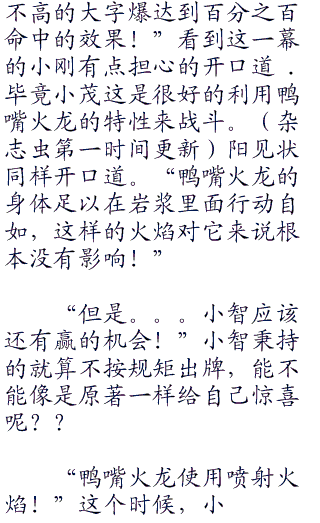 不高的大字爆达到百分之百
命中的效果！”看到这一幕
的小刚有点担心的开口道．
毕竟小茂这是很好的利用鸭
嘴火龙的特性来战斗。（杂
志虫第一时间更新）阳见状
同样开口道。“鸭嘴火龙的
身体足以在岩浆里面行动自
如，这样的火焰对它来说根
本没有影响！”
“但是。。。小智应该
还有赢的机会！”小智秉持
的就算不按规矩出牌，能不
能像是原著一样给自己惊喜
呢？？
“鸭嘴火龙使用喷射火
焰！”这个时候，小